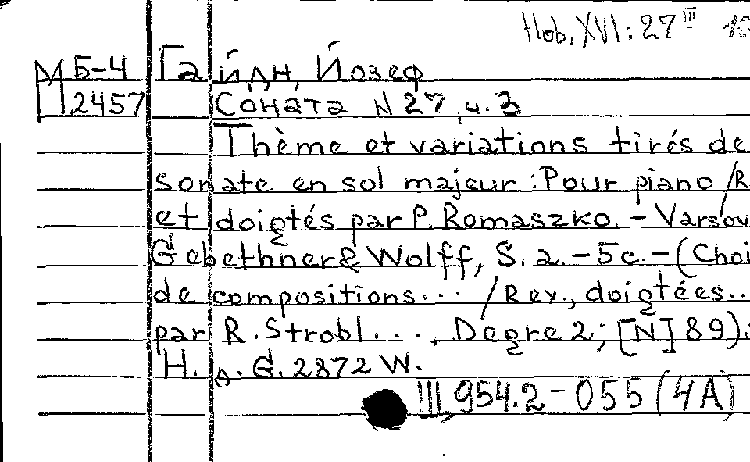 Hob. XVI: 27 III
М Б-4 Гайдн, Йозеф
П 2457 Соната N 27, ч. 3
Thème et variations tirés de
sonate en sol majeur : Pour piano / R
et doigtés par P. Romaszko. - Varsov
Gebethner & Wolff, S. a. - 5 c. - (Choi
de compositions... / Rev., doigtées..
par R. Strobl..., Degre 2; [N] 89).
H. A. G. 2872 W.
III 954.2-055 (4A)